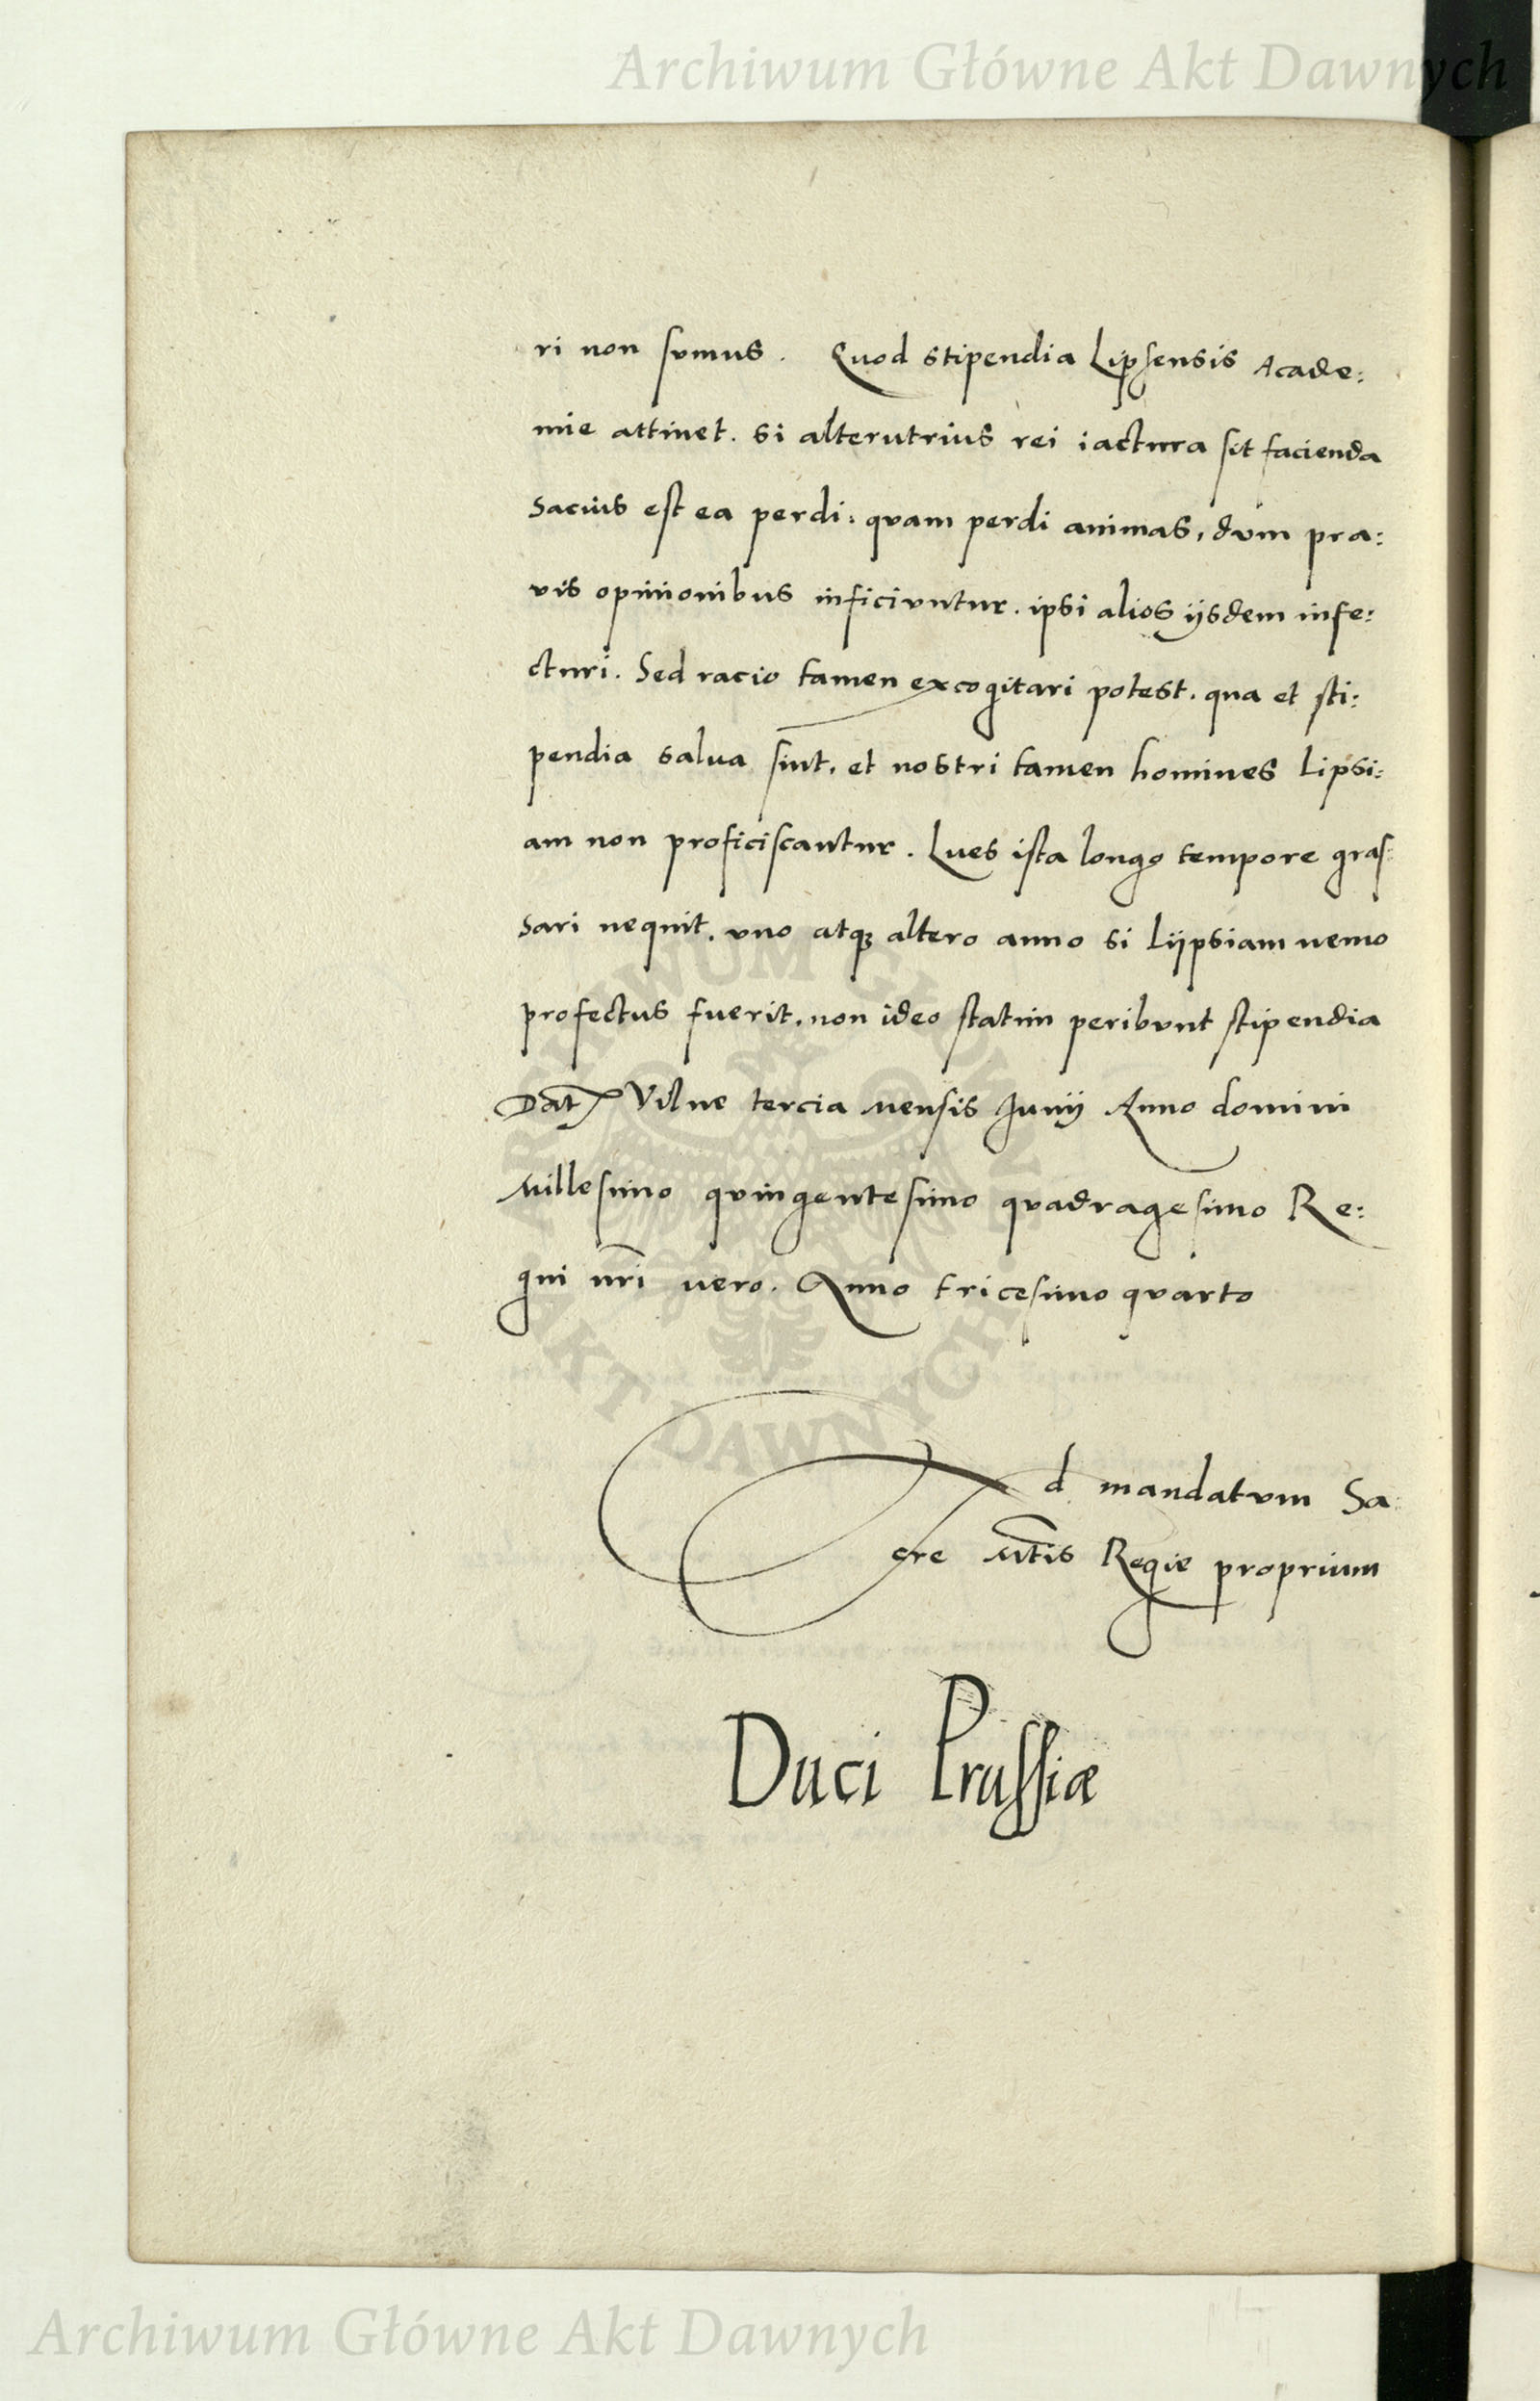 Archiwum Główne Akt Dawnych
ri non sumus. Quod stipendia Lipsensis Acade:
mie attinet. si alterutrius rei iactura sit facienda
Sacius est ea perdi: quam perdi animas, dum pra:
vis opinionibus inficiuntur. ipsi alios ijsdem infe:
cturi. Sed racio tamen excogitari potest. qua et sti:
pendia salva sint, et nostri tamen homines Lipsi:
am non proficiscantur. Lues ista longo tempore gras:
sari nequit. uno atq3 altero anno si Lijpsiam nemo
profectus fuerit, non ideo statim peribunt stipendia
Dat Vilne tercia Mensis Junij Anno domini
Millesimo quingentesimo quadragesimo Re:
gni nri vero. Anno tricesimo quarto
Ad mandatum Sa:
cre Mtis Regie proprium
Duci Prussiæ
ARCHIWUM GŁÓWNE AKT DAWNYCH
Archiwum Główne Akt Dawnych